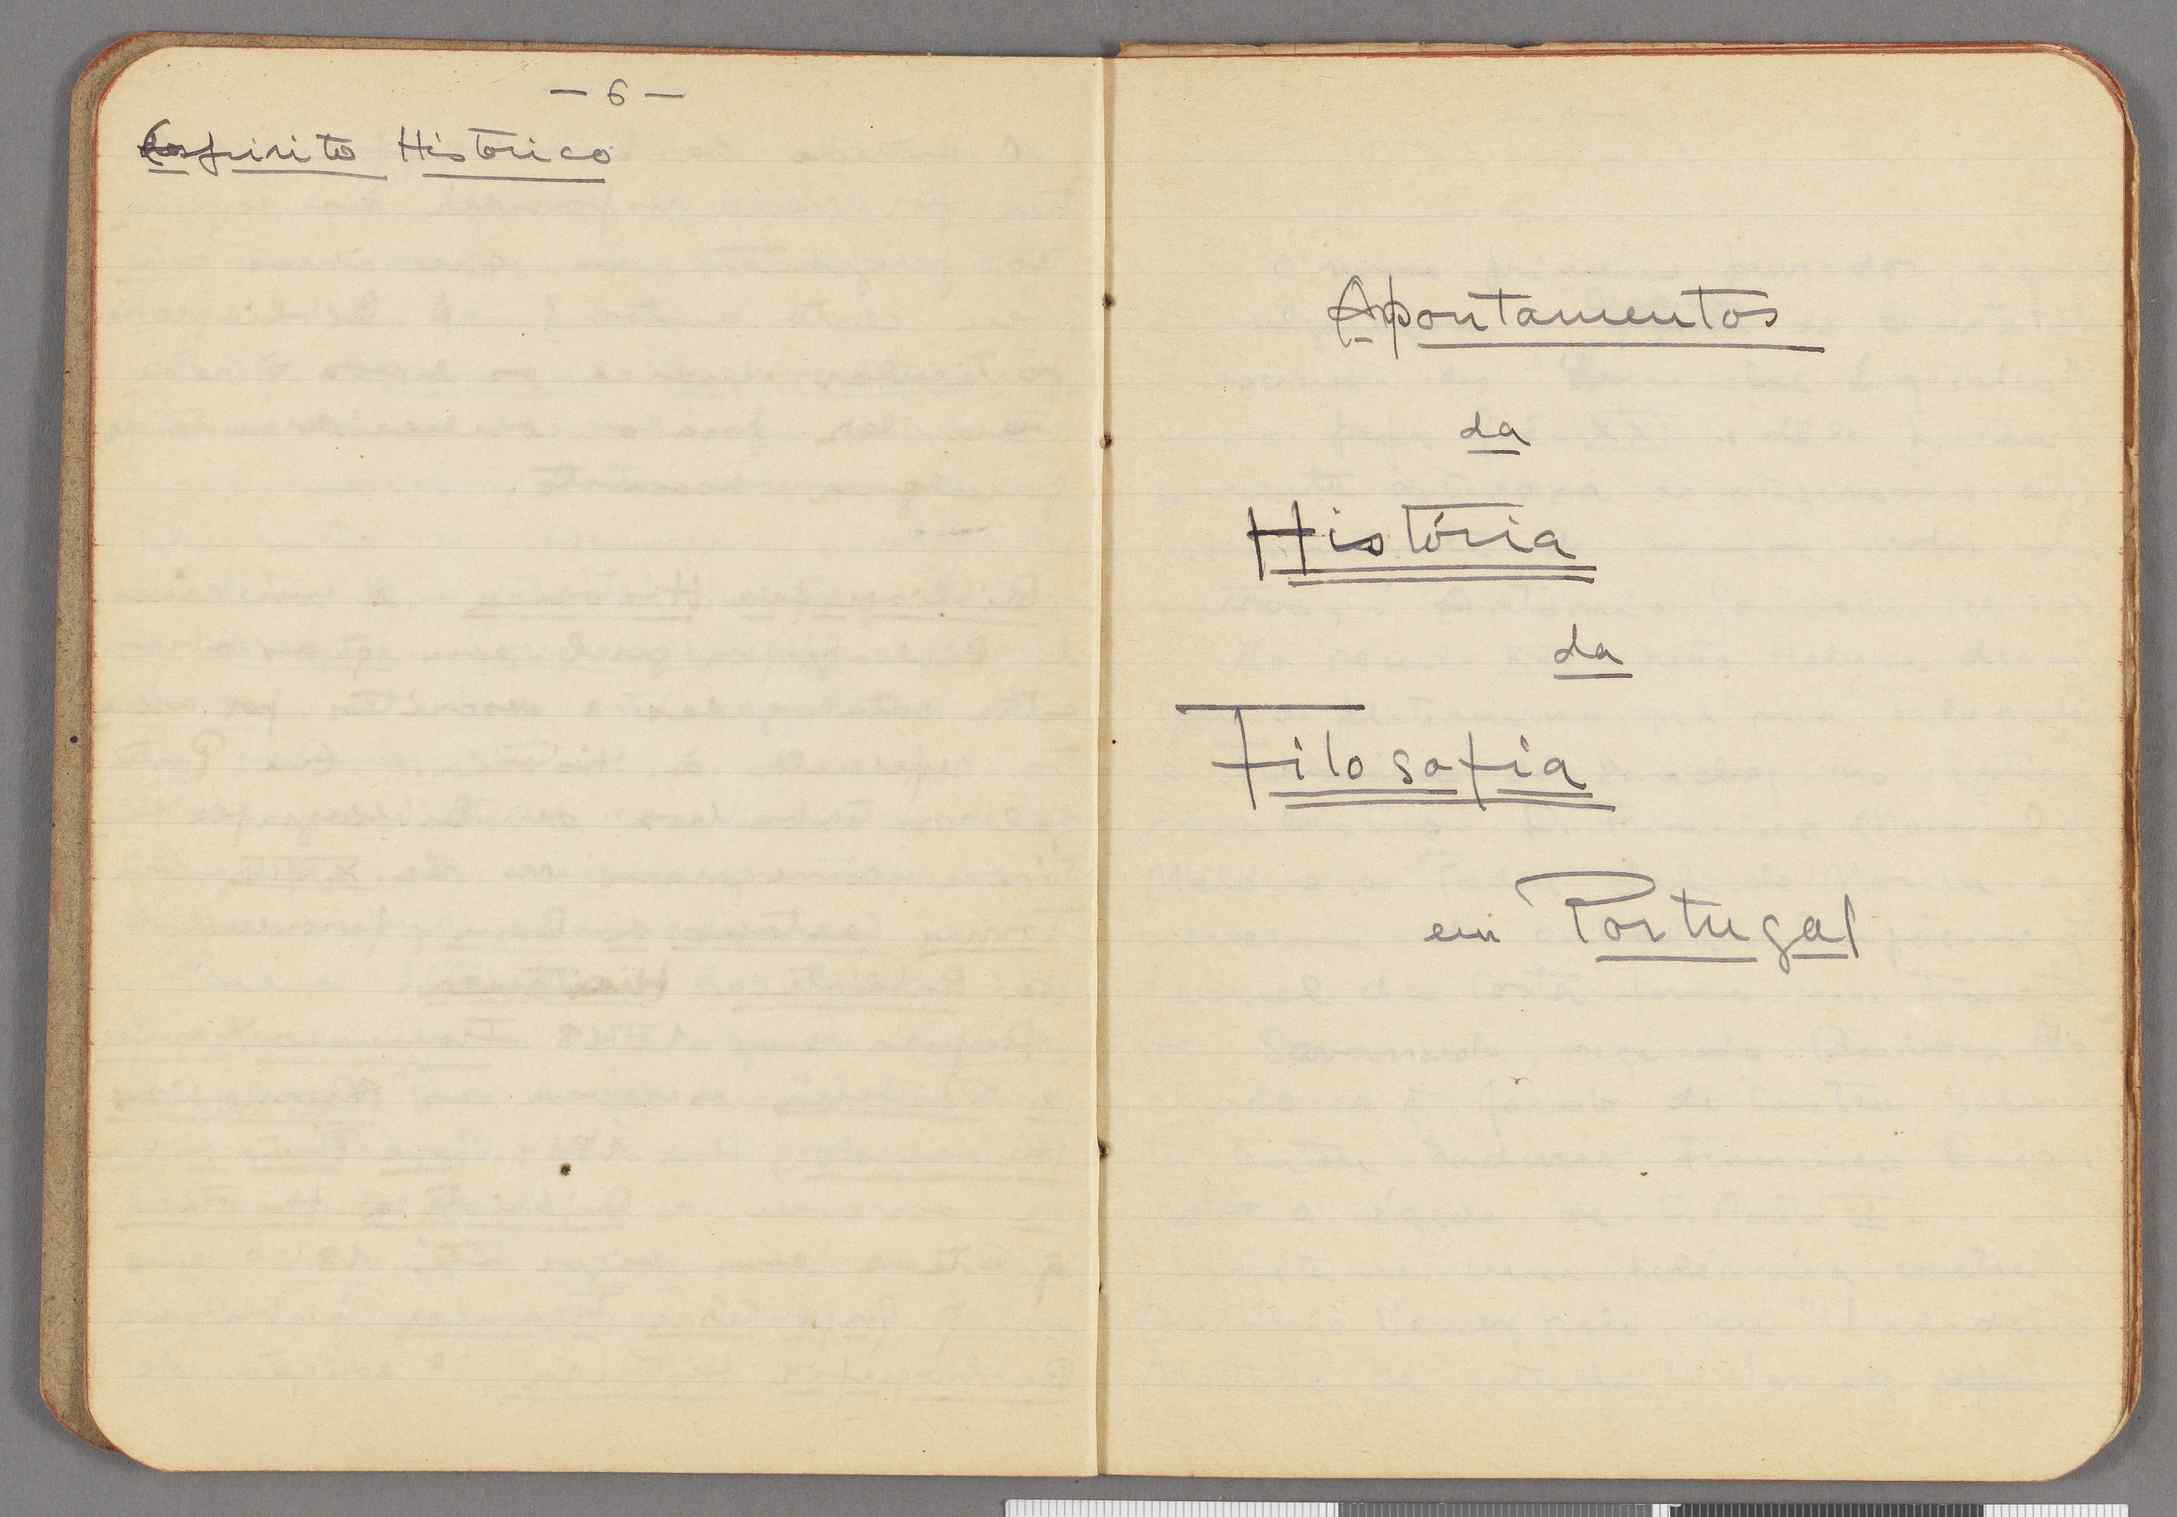 — 6 —
Espirito Historico
Apontamentos
da
História
da
Filosofia
em Portugal